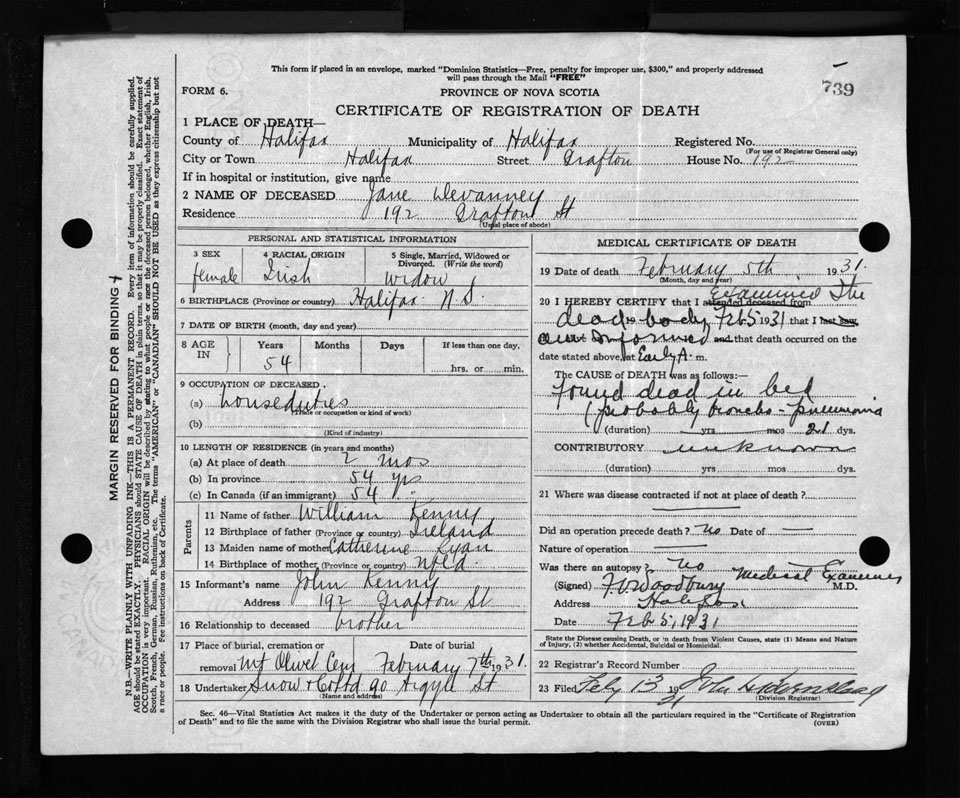 This form if placed in an envelope, marked "Dominion Statistics—Free, penalty for improper use, $300," and properly addressed
will pass through the Mail "FREE"
739
FORM 6.
PROVINCE OF NOVA SCOTIA
CERTIFICATE OF REGISTRATION OF DEATH
1 PLACE OF DEATH—
County of Halifax Municipality of Halifax Registered No.
(For use of Registrar General only)
City or Town Halifax Street Grafton House No. 192
If in hospital or institution, give name
2 NAME OF DECEASED Jane Devanney
Residence 192 Grafton St
(Usual place of abode)
PERSONAL AND STATISTICAL INFORMATION
3 SEX 4 RACIAL ORIGIN 5 Single, Married, Widowed or
Divorced. (Write the word)
female Irish widow
6 BIRTHPLACE (Province or country) Halifax N.S.
7 DATE OF BIRTH (month, day and year)
8 AGE IN Years Months Days If less than one day,
54 hrs. or min.
9 OCCUPATION OF DECEASED.
(a) house duties
(Trade or occupation or kind of work)
(b)
(Kind of industry)
10 LENGTH OF RESIDENCE (in years and months)
(a) At place of death 2 mos
(b) In province 54 yrs
(c) In Canada (if an immigrant) 54
Parents
11 Name of father William Kenny
12 Birthplace of father (Province or country) Ireland
13 Maiden name of mother Catherine Ryan
14 Birthplace of mother (Province or country) Nfld.
15 Informant's name John Kenny
Address 192 Grafton St
16 Relationship to deceased brother
17 Place of burial, cremation or Date of burial
removal Mt Olivet Cem February 7th 1931.
18 Undertaker Snow & Co Ltd 90 Argyle St
(Name and address)
MEDICAL CERTIFICATE OF DEATH
19 Date of death February 5th, 1931.
(Month, day and year)
20 I HEREBY CERTIFY that I attended deceased from Examined the
dead body Feb 5 1931 that I last saw
am informed and that death occurred on the
date stated above, at Early A. m.
The CAUSE OF DEATH was as follows:—
Found dead in bed
(probably broncho-pneumonia
(duration) yrs mos 21 dys.
CONTRIBUTORY unknown
(duration) yrs mos dys.
21 Where was disease contracted if not at place of death?
Did an operation precede death? No Date of —
Nature of operation —
Was there an autopsy? No
(Signed) F. V. Woodbury Medical Examiner M.D.
Address Halifax
Date Feb 5, 1931
State the Disease causing Death, or in death from Violent Causes, state (1) Means and Nature
of Injury, (2) whether Accidental, Suicidal or Homicidal.
22 Registrar's Record Number
23 Filed Feby 13 1931 John
(Division Registrar)
Sec. 46—Vital Statistics Act makes it the duty of the Undertaker or person acting as Undertaker to obtain all the particulars required in the "Certificate of Registration
of Death" and to file the same with the Division Registrar who shall issue the burial permit.
(OVER)
MARGIN RESERVED FOR BINDING
N.B.—WRITE PLAINLY WITH UNFADING INK—THIS IS A PERMANENT RECORD. Every item of information should be carefully supplied.
AGE should be stated EXACTLY. PHYSICIANS should STATE CAUSE OF DEATH in plain terms, so that it may be properly classified. Exact statement of
OCCUPATION is very important. RACIAL ORIGIN will be described by stating to what people or race the deceased person belonged, whether English, Irish,
Scotch, French, German, Russian, Ruthenian, etc. The terms "AMERICAN" or "CANADIAN" SHOULD NOT BE USED as they express citizenship but not
a race or people. See instructions on back of Certificate.